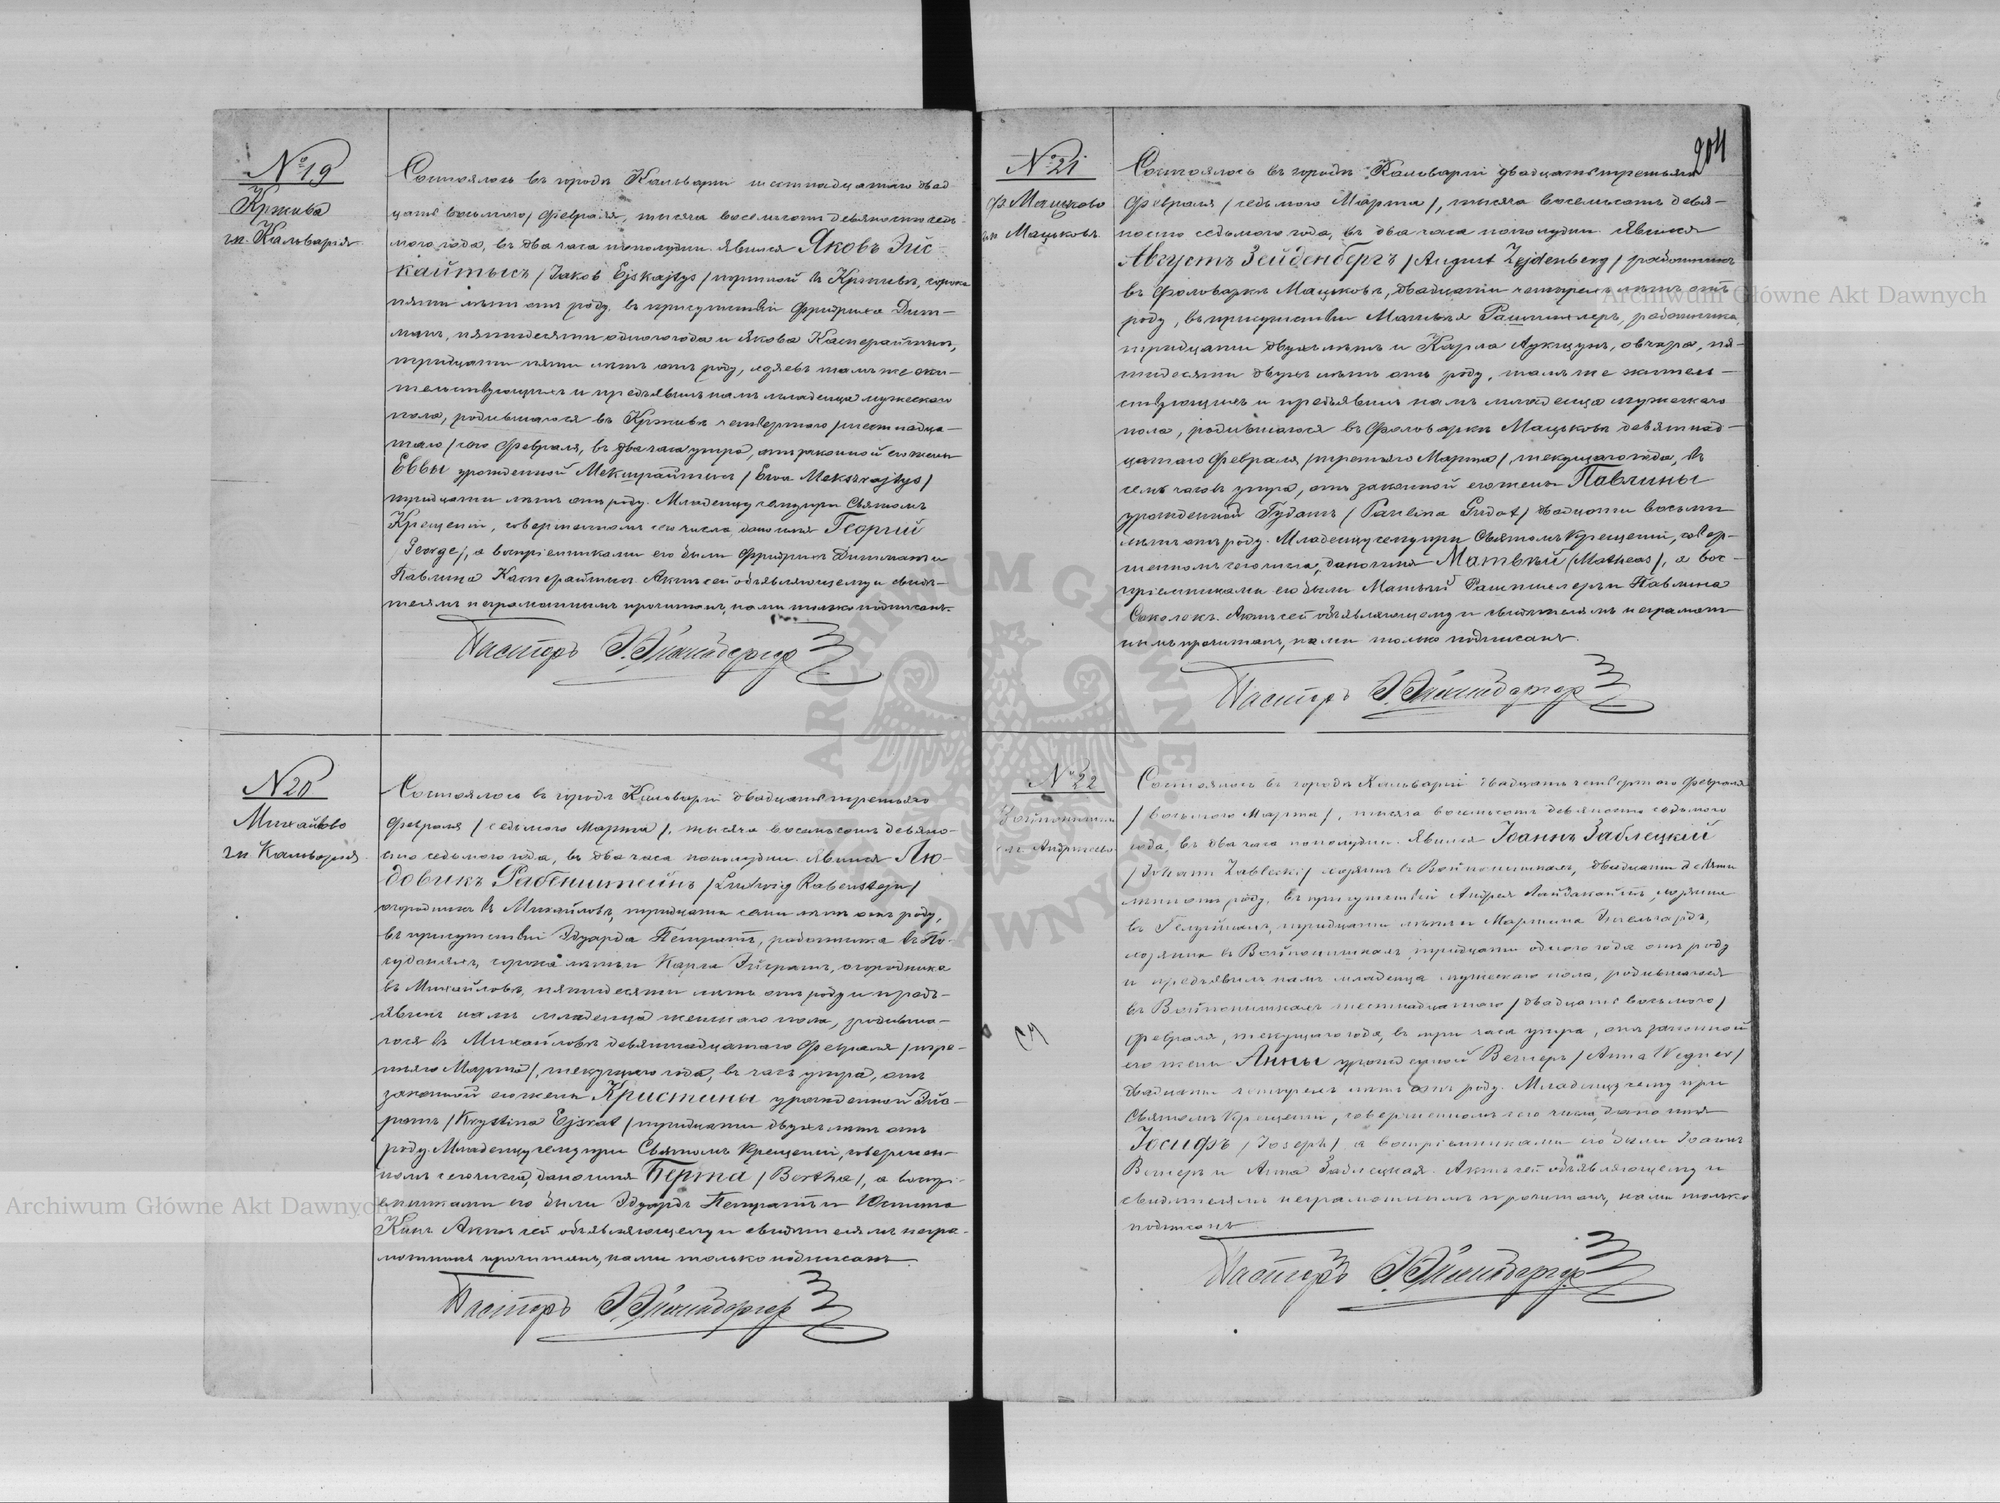 № 19
Кржива
гм. Кальвария
Состоялось въ городѣ Кальваріи шестнадцатаго /двад-
цать восьмого/ Февраля, тысяча восемьсотъ девяносто седь-
мого года, въ два часа пополудни. Явился Яковъ Эйс-
кайтысъ /Jakob Ejskajtys/ въ Крживѣ, сорока
пяти лѣтъ отъ роду, въ присутствіи Фридриха Дит-
пятидесяти одного года и Якова Касперайтиса,
тридцати пяти лѣтъ отъ роду, тамъ же жи-
тельствующихъ и предъявилъ намъ младенца мужескаго
пола, родившагося въ Крживѣ четвертаго /шестнадца-
таго/ сего Февраля, въ два часа утра, отъ законной его жены
Еввы урожденной /Ewa Meksrajtys/
тридцати лѣтъ отъ роду. Младенцу сему при Святомъ
Крещеніи, совершенномъ сего числа, дано имя Георгій
/George/, а воспріемниками его были Фридрихъ и
Павлина Касперайтисъ. Актъ сей объявляющему и свидѣ-
телямъ неграмотнымъ прочитанъ, нами только подписанъ.
Пасторъ
№ 20
Михайлово
гм. Кальвария
Состоялось въ городѣ Кальваріи двадцать третьяго
Февраля /седьмого Марта/, тысяча восемьсотъ девяно-
сто седьмого года, въ два часа пополудни. Явился Лю-
довикъ Рабенштейнъ /Ludwig Rabenstejn/
огородникъ въ Михайловѣ, тридцати семи лѣтъ отъ роду,
въ присутствіи Эдуарда работника въ По-
сорока лѣтъ и Карла огородника
въ Михайловѣ, пятидесяти лѣтъ отъ роду и предъ-
явилъ намъ младенца женскаго пола, родивша-
гося въ Михайловѣ девятнадцатаго Февраля /тре-
тьяго Марта/, текущаго года, въ часъ утра, отъ
законной его жены Кристины урожденной Эйс-
ратъ /Krystina Ejsrat/ тридцати двухъ лѣтъ отъ
роду. Младенцу сему при Святомъ Крещеніи, совершен-
номъ сего числа, дано имя Берта /Bertha/, а воспрі-
емниками его были Эдуардъ и Юстина
Актъ сей объявляющему и свидѣтелямъ негра-
мотнымъ прочитанъ, нами только подписанъ.
Пасторъ
204
№ 21
ф. Мацьково
гм. Мацьковъ
Состоялось въ городѣ Кальваріи двадцать третьяго
Февраля /седьмого Марта/, тысяча восемьсотъ девя-
носто седьмого года, въ два часа пополудни. Явился
Августъ Зейденбергъ /August Zejdenberg/ работникъ
въ Фольваркѣ Мацьковѣ, двадцати четырехъ лѣтъ отъ
роду, въ присутствіи Матвѣя работника,
тридцати двухъ лѣтъ и Карла овчара, пя-
тидесяти двухъ лѣтъ отъ роду, тамъ же житель-
ствующихъ и предъявилъ намъ младенца мужескаго
пола, родившагося въ Фольваркѣ Мацьковѣ девятнад-
цатаго Февраля /третьяго Марта/, текущаго года, въ
семь часовъ утра, отъ законной его жены Павлины
урожденной Гудатъ /Paulina Gudat/ двадцати восьми
лѣтъ отъ роду. Младенцу сему при Святомъ Крещеніи, совер-
шенномъ сего числа, дано имя Матвѣй /Matheas/, а вос-
пріемниками его были Матвѣй и Павлина
Соколокъ. Актъ сей объявляющему и свидѣтелямъ неграмот-
нымъ прочитанъ, нами только подписанъ.
Пасторъ
№ 22
Войпонишки
гм. Андржеево
Состоялось въ городѣ Кальваріи двадцать четвертаго Февраля
/восьмого Марта/, тысяча восемьсотъ девяносто седьмого
года, въ два часа пополудни. Явился Іоаннъ Заблецкій
/Johann Zablecki/ хозяинъ въ Войпонишкахъ, двадцати девяти
лѣтъ отъ роду, въ присутствіи Андрея хозяина
въ тридцати лѣтъ и Мартина
хозяина въ Войпонишкахъ, тридцати одного года отъ роду
и предъявилъ намъ младенца мужескаго пола, родившагося
въ Войпонишкахъ шестнадцатаго /двадцать восьмого/
Февраля, текущаго года, въ три часа утра, отъ законной
его жены Анны урожденной Вегнеръ /Anna Wegner/
двадцати четырехъ лѣтъ отъ роду. Младенцу сему при
Святомъ Крещеніи, совершенномъ сего числа, дано имя
Іосифъ /Joseph/, а воспріемниками его были Іоаннъ
Вегнеръ и Анна Заблецкая. Актъ сей объявляющему и
свидѣтелямъ неграмотнымъ прочитанъ, нами только
подписанъ.
Пасторъ
Archiwum Główne Akt Dawnych
Archiwum Główne Akt Dawnych
ARCHIWUM GŁÓWNE AKT DAWNYCH